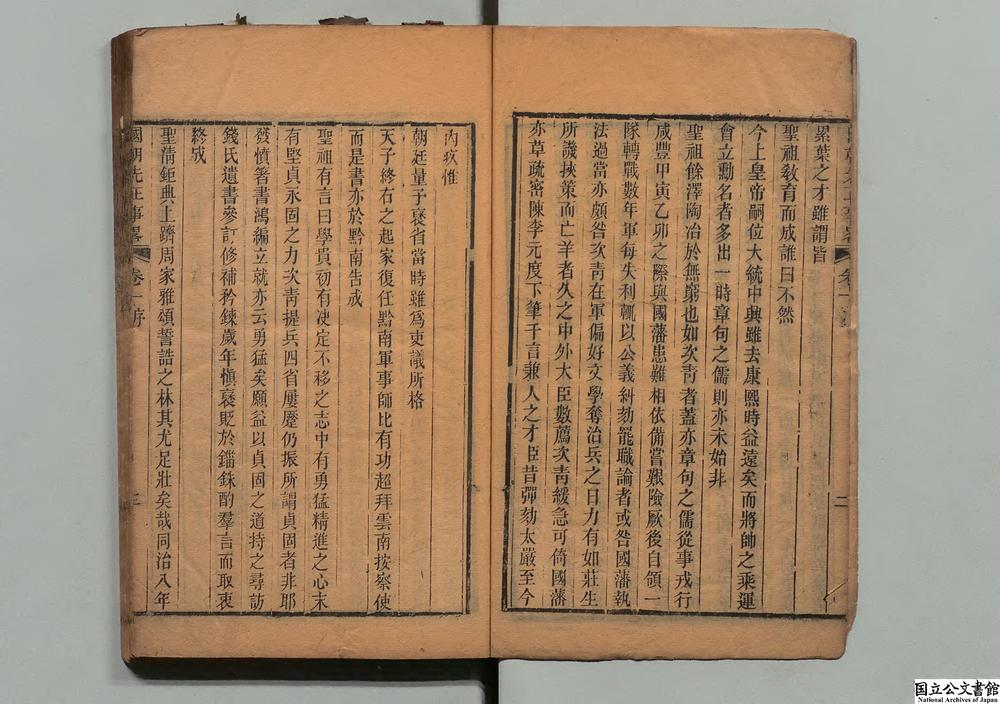 累葉之才雖謂皆
聖祖敎育而成誰曰不然
今上皇帝嗣位大統中興雖去康熙時益遠矣而將帥之乘運
會立勳名者多出一時章句之儒則亦未始非
聖祖餘澤陶冶於無窮也如次靑者蓋亦章句之儒從事戎行
咸豐甲寅乙卯之際與國藩患難相依備嘗艱險厥後自領一
隊轉戰數年軍每失利輒以公義糾劾罷職論者或咎國藩執
法過當亦頗咎次靑在軍偏好文學奪治兵之日力有如莊生
所譏挾策而亡羊者久之中外大臣數薦次靑緩急可倚國藩
亦草疏密陳李元度下筆千言兼人之才臣昔彈劾太嚴至今
內疚惟
朝廷量予褒省當時雖爲吏議所格
天子終右之起家復任黔南軍事師比有功超拜雲南按察使
而是書亦於黔南告成
聖祖有言曰學貴初有决定不移之志中有勇猛精進之心末
有堅貞永固之力次靑提兵四省屢蹷仍振所謂貞固者非耶
發憤箸書鴻編立就亦云勇猛矣願益以貞固之道持之尋訪
錢氏遺書參訂修補矜鍊歲年愼褒貶於錙銖酌羣言而取衷
終成
聖淸鉅典上躋周家雅頌誓誥之林其尤足壯矣哉同治八年
國朝先正事畧
卷一序
三
二
国立公文書館
National Archives of Japan